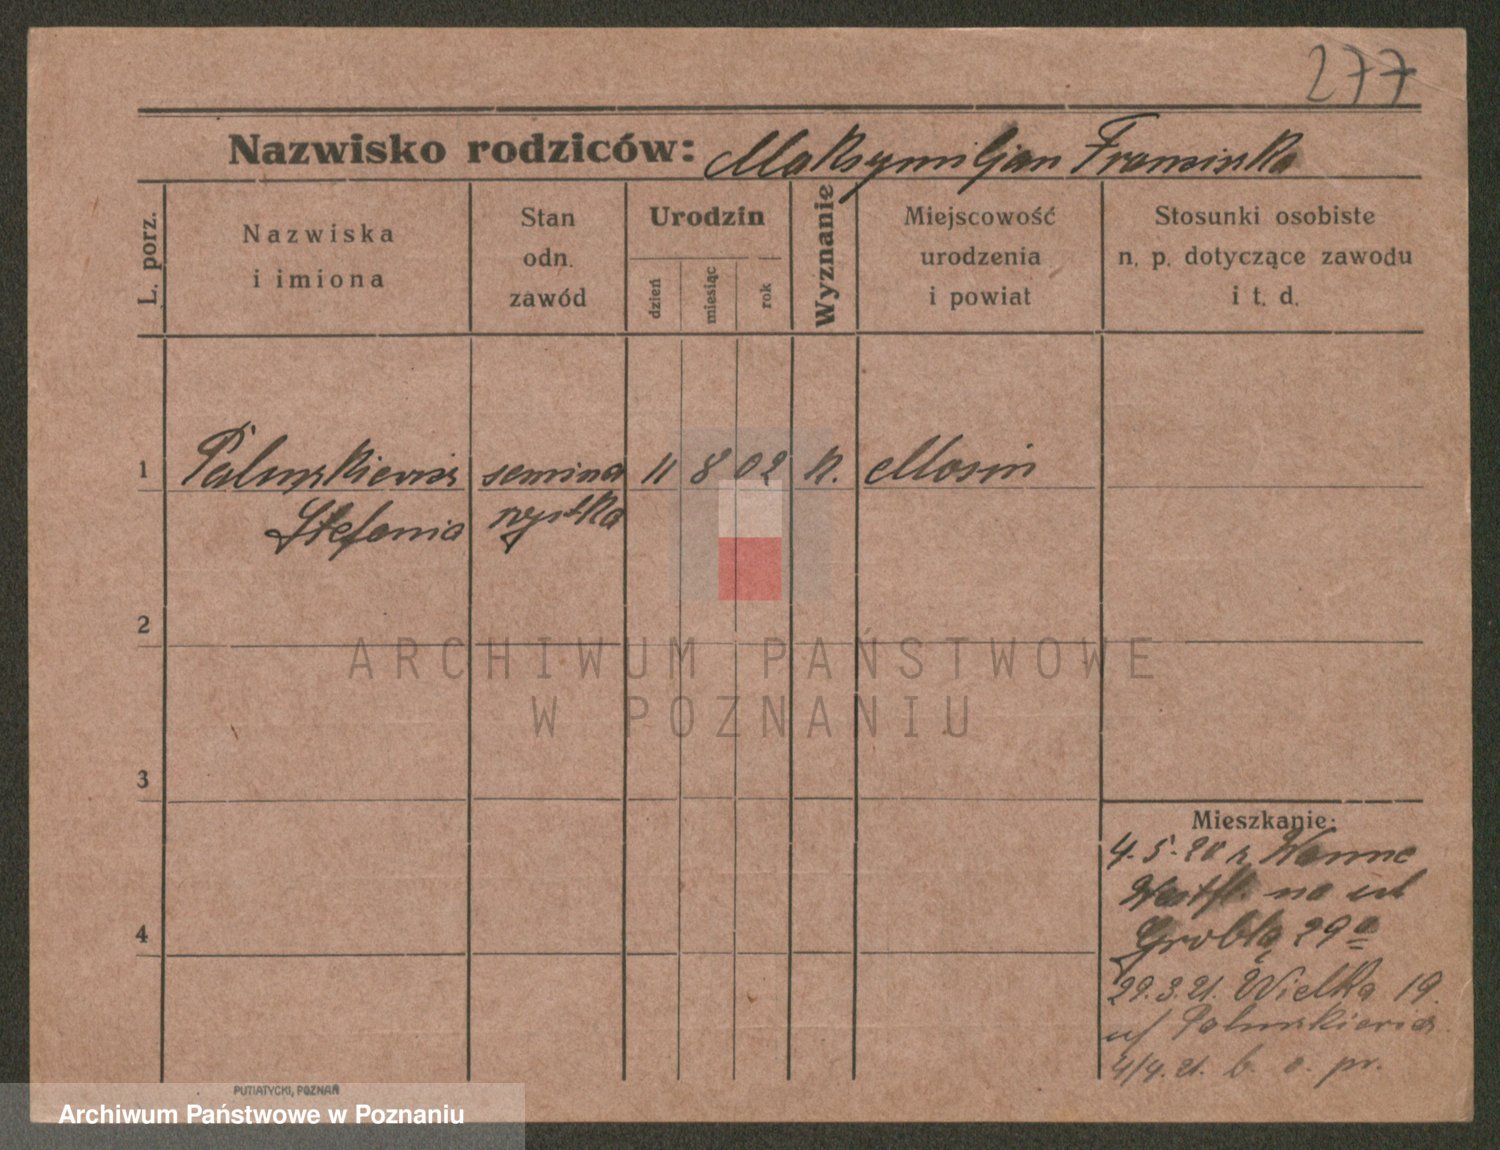 277
Nazwisko rodziców: Maksymiljan Franciszka
L. porz.
Nazwiska
i imiona
Stan
odn.
zawód
Urodzin
dzień
miesiąc
rok
Wyznanie
Miejscowość
urodzenia
i powiat
Stosunki osobiste
n. p. dotyczące zawodu
i t. d.
1
semina
11 8 02 k. Mosin
Stefania
rzystka
2
ARCHIWUM PAŃSTWOWE
W POZNANIU
3
Mieszkanie:
4.5.20 r. Wanne
Westfl. na ul
4
Groblą 29a
29.3.21. Wielka 19.
4/4. 21. b. o. pr.
PUTIATYCKI, POZNAŃ
Archiwum Państwowe w Poznaniu